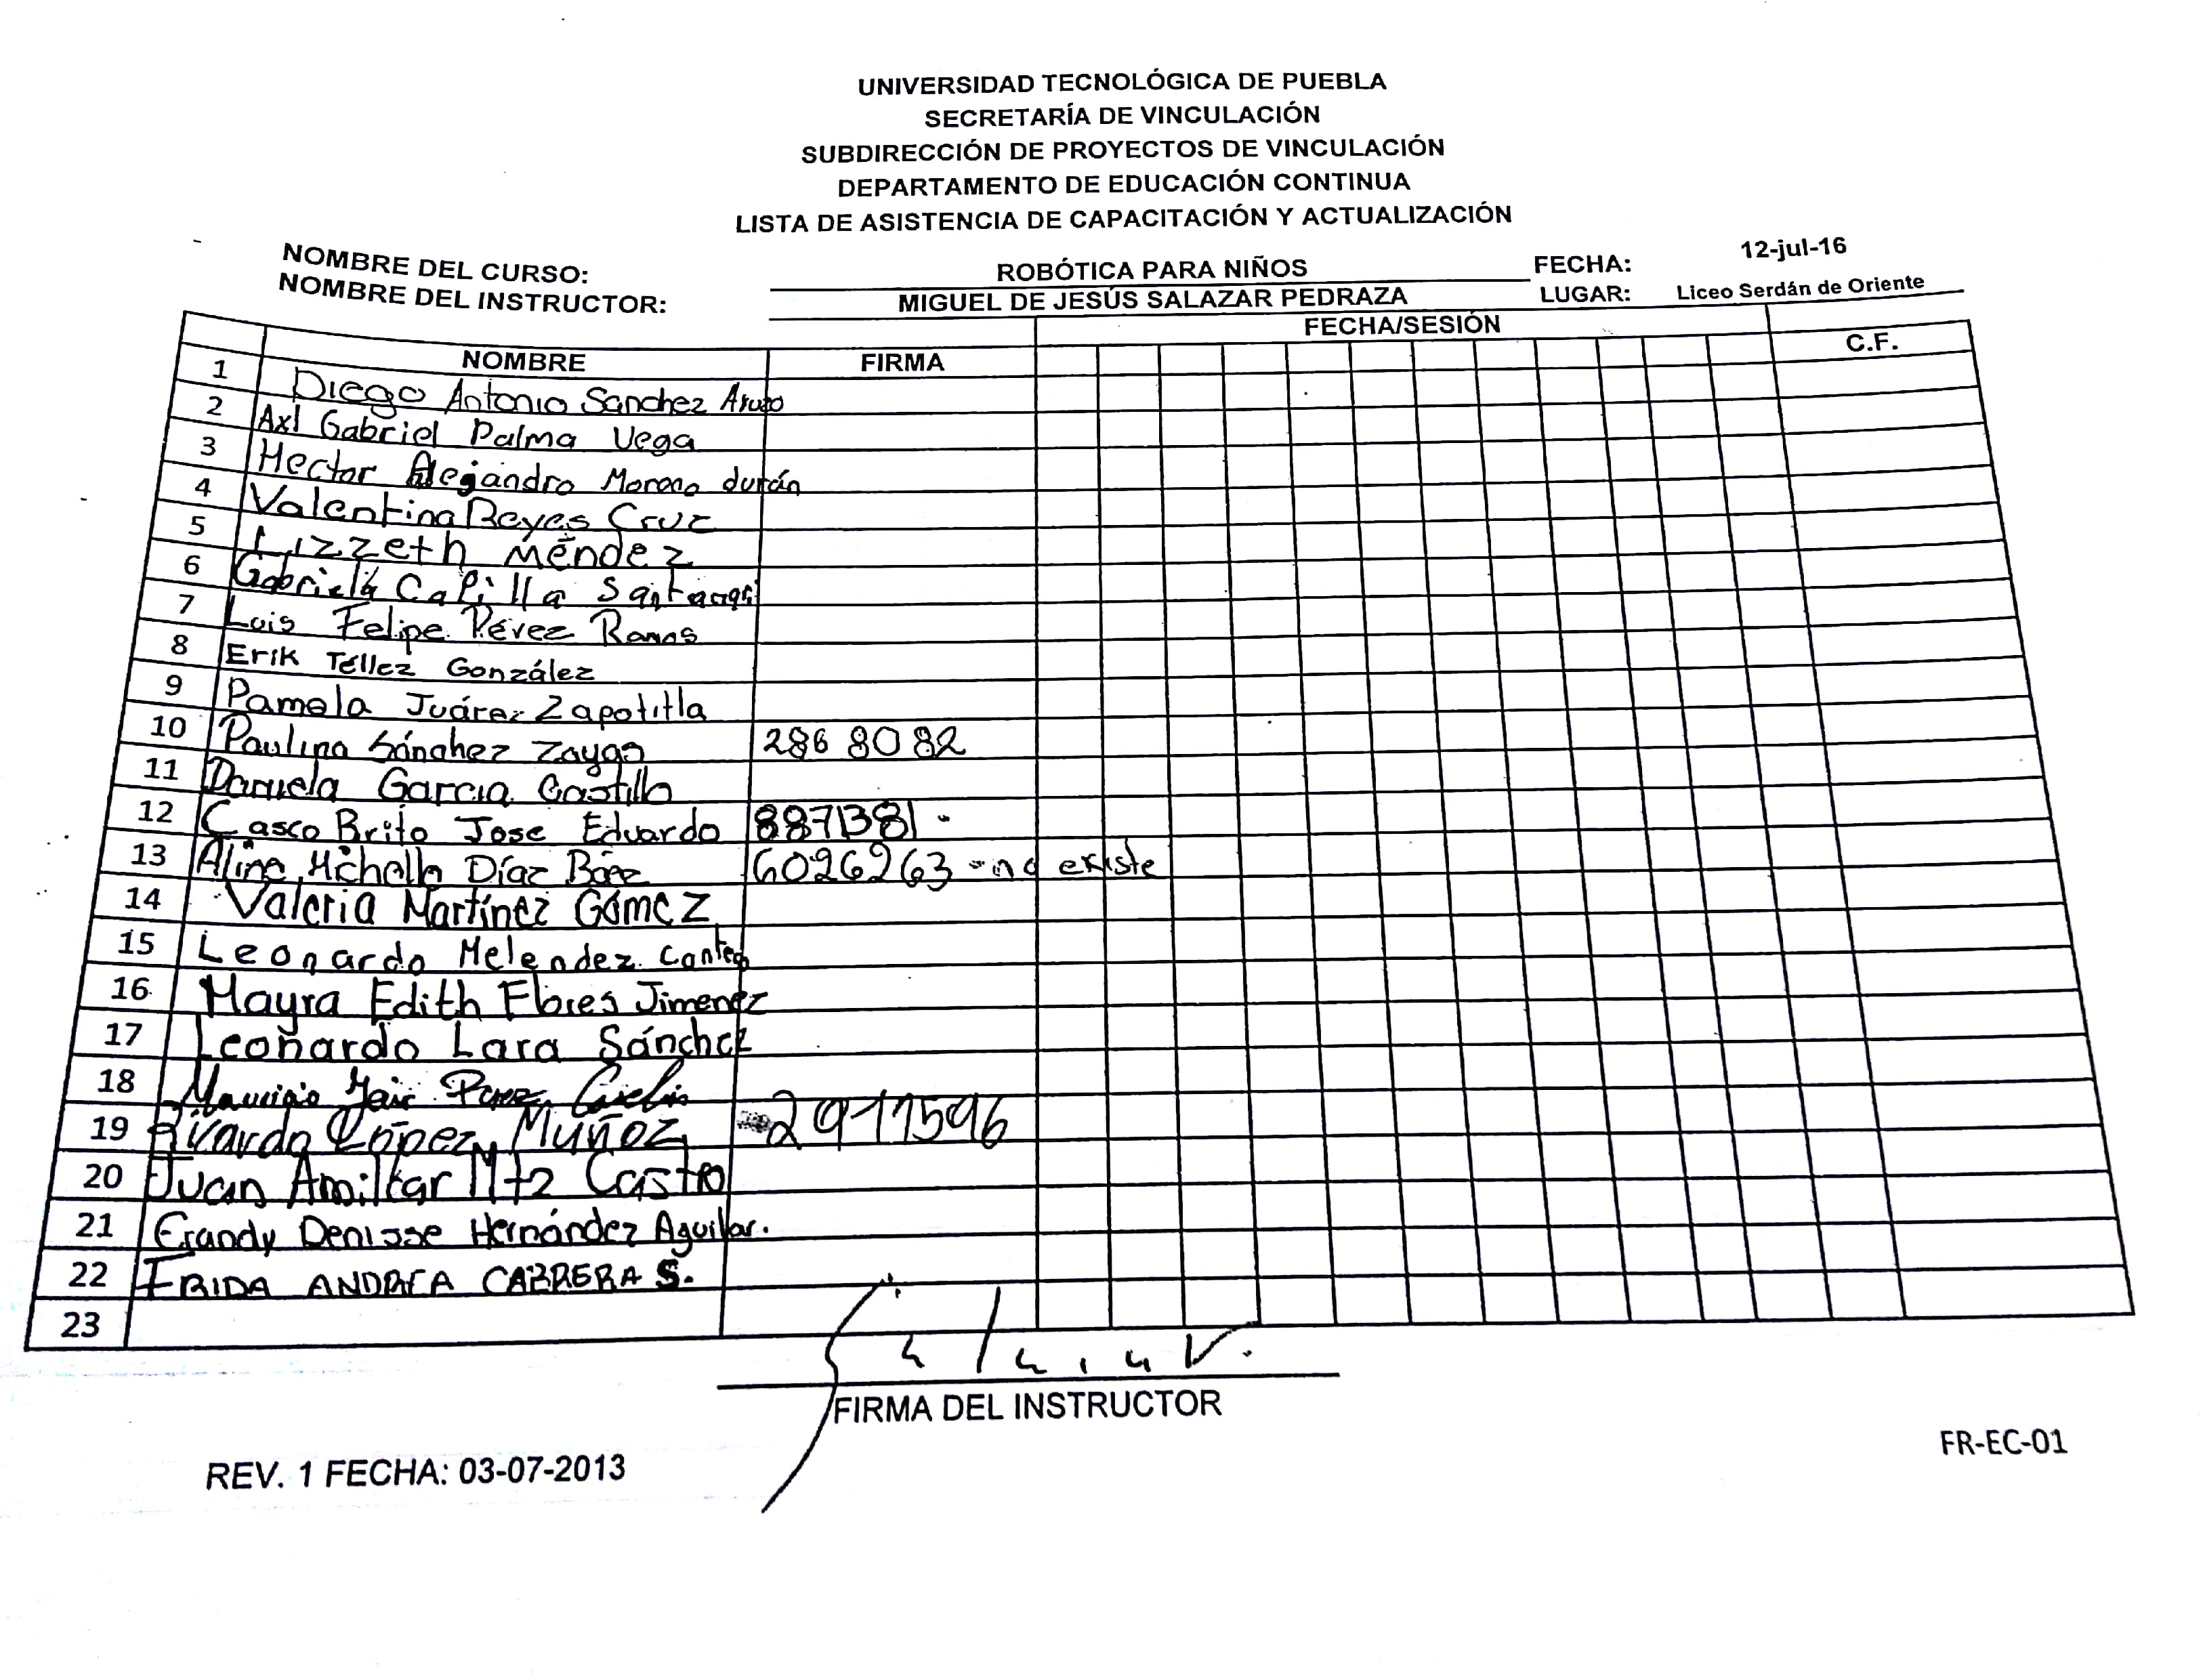 UNIVERSIDAD TECNOLÓGICA DE PUEBLA
SECRETARÍA DE VINCULACIÓN
SUBDIRECCIÓN DE PROYECTOS DE VINCULACIÓN
DEPARTAMENTO DE EDUCACIÓN CONTINUA
LISTA DE ASISTENCIA DE CAPACITACIÓN Y ACTUALIZACIÓN
NOMBRE DEL CURSO: ROBÓTICA PARA NIÑOS FECHA: 12-jul-16
NOMBRE DEL INSTRUCTOR: MIGUEL DE JESÚS SALAZAR PEDRAZA LUGAR: Liceo Serdán de Oriente
NOMBRE FIRMA FECHA/SESIÓN C.F.
1 Diego Antonio Sanchez
2 Axl Gabriel Palma Vega
3 Hector Alejandro Moreno durán
4 Valentina Reyes Cruz
5 Lizzeth Méndez
6 Gabriela Capilla
7 Luis Felipe Pérez Ramos
8 Erik Téllez González
9 Pamela Juárez Zapotitla
10 Paulina Sánchez Zayas 2868082
11 Daniela Garcia Castillo
12 Casco Brito Jose Eduardo 8871381
13 Aline Michelle Díaz Báez 6026263 - no existe
14 Valeria Martínez Gómez
15 Leonardo Melendez
16 Mayra Edith Flores Jimenez
17 Leonardo Lara Sánchez
18 Mauricio Jair Perez
19 Ricardo López Muñoz 2911596
20 Juan Amilkar Mtz Castro
21 Erandy Denisse Hernández Aguilar.
22 FRIDA ANDREA CABRERA S.
23
FIRMA DEL INSTRUCTOR
FR-EC-01
REV. 1 FECHA: 03-07-2013